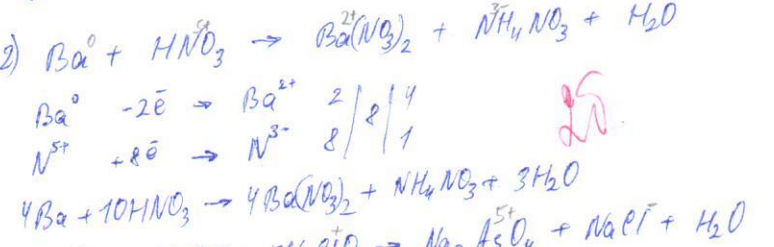 2) Ba⁰ + HN⁵⁺O₃ → Ba²⁺(NO₃)₂ + N³⁻H₄NO₃ + H₂O
Ba⁰ -2ē → Ba²⁺ 2 | 8 | 4
N⁵⁺ +8ē → N³⁻ 8 | | 1
2б.
4Ba + 10HNO₃ → 4Ba(NO₃)₂ + NH₄NO₃ + 3H₂O
As⁵⁺O₄ + NaCl⁻ + H₂O